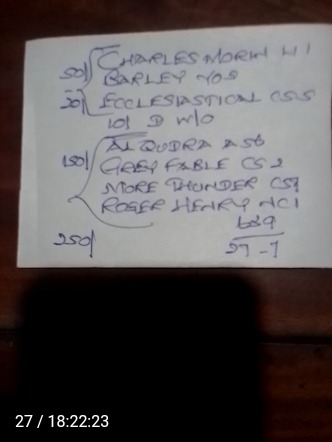 50/ CHARLES MORIN H1
BARLEY YOS
50/ ECCLESIASTICAL CS5
10/ D W/O
150/ AL QUDRA AS6
GREY FABLE CS2
MORE THUNDER CS9
ROGER HENRY NC1
639
250/ 27-7
27 / 18:22:23